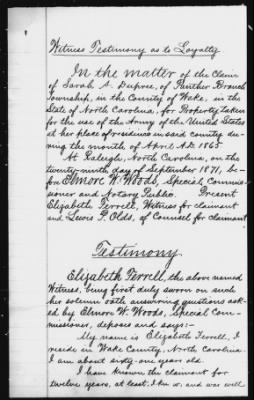 Witness Testimony as to Loyalty
In the matter of the Claim
of Sarah A. Dupree, of Panther Branch
Township, in the County of Wake, in the
State of North Carolina, for Property taken
for the use of the Army of the United States
at her place of residence in said county du-
ring the month of April A.D. 1865
At Raleigh, North Carolina, on the
twenty-ninth day of September 1871, be-
fore Elmore W. Woods, Special Commis-
sioner and Notary Public. Present
Elizabeth Ferrell, Witness for claimant
and Lewis P. Olds, of Counsel for claimant
Testimony
Elizabeth Ferrell, the above named
Witness, being first duly sworn on such
her solemn oath answering questions ask-
ed by Elmore W. Woods, Special Com-
missioner, deposes and says:-
My name is Elizabeth Ferrell, I
reside in Wake County, North Carolina.
I am about sixty-one years old.
I have known the claimant for
twelve years, at least. I knew and was well